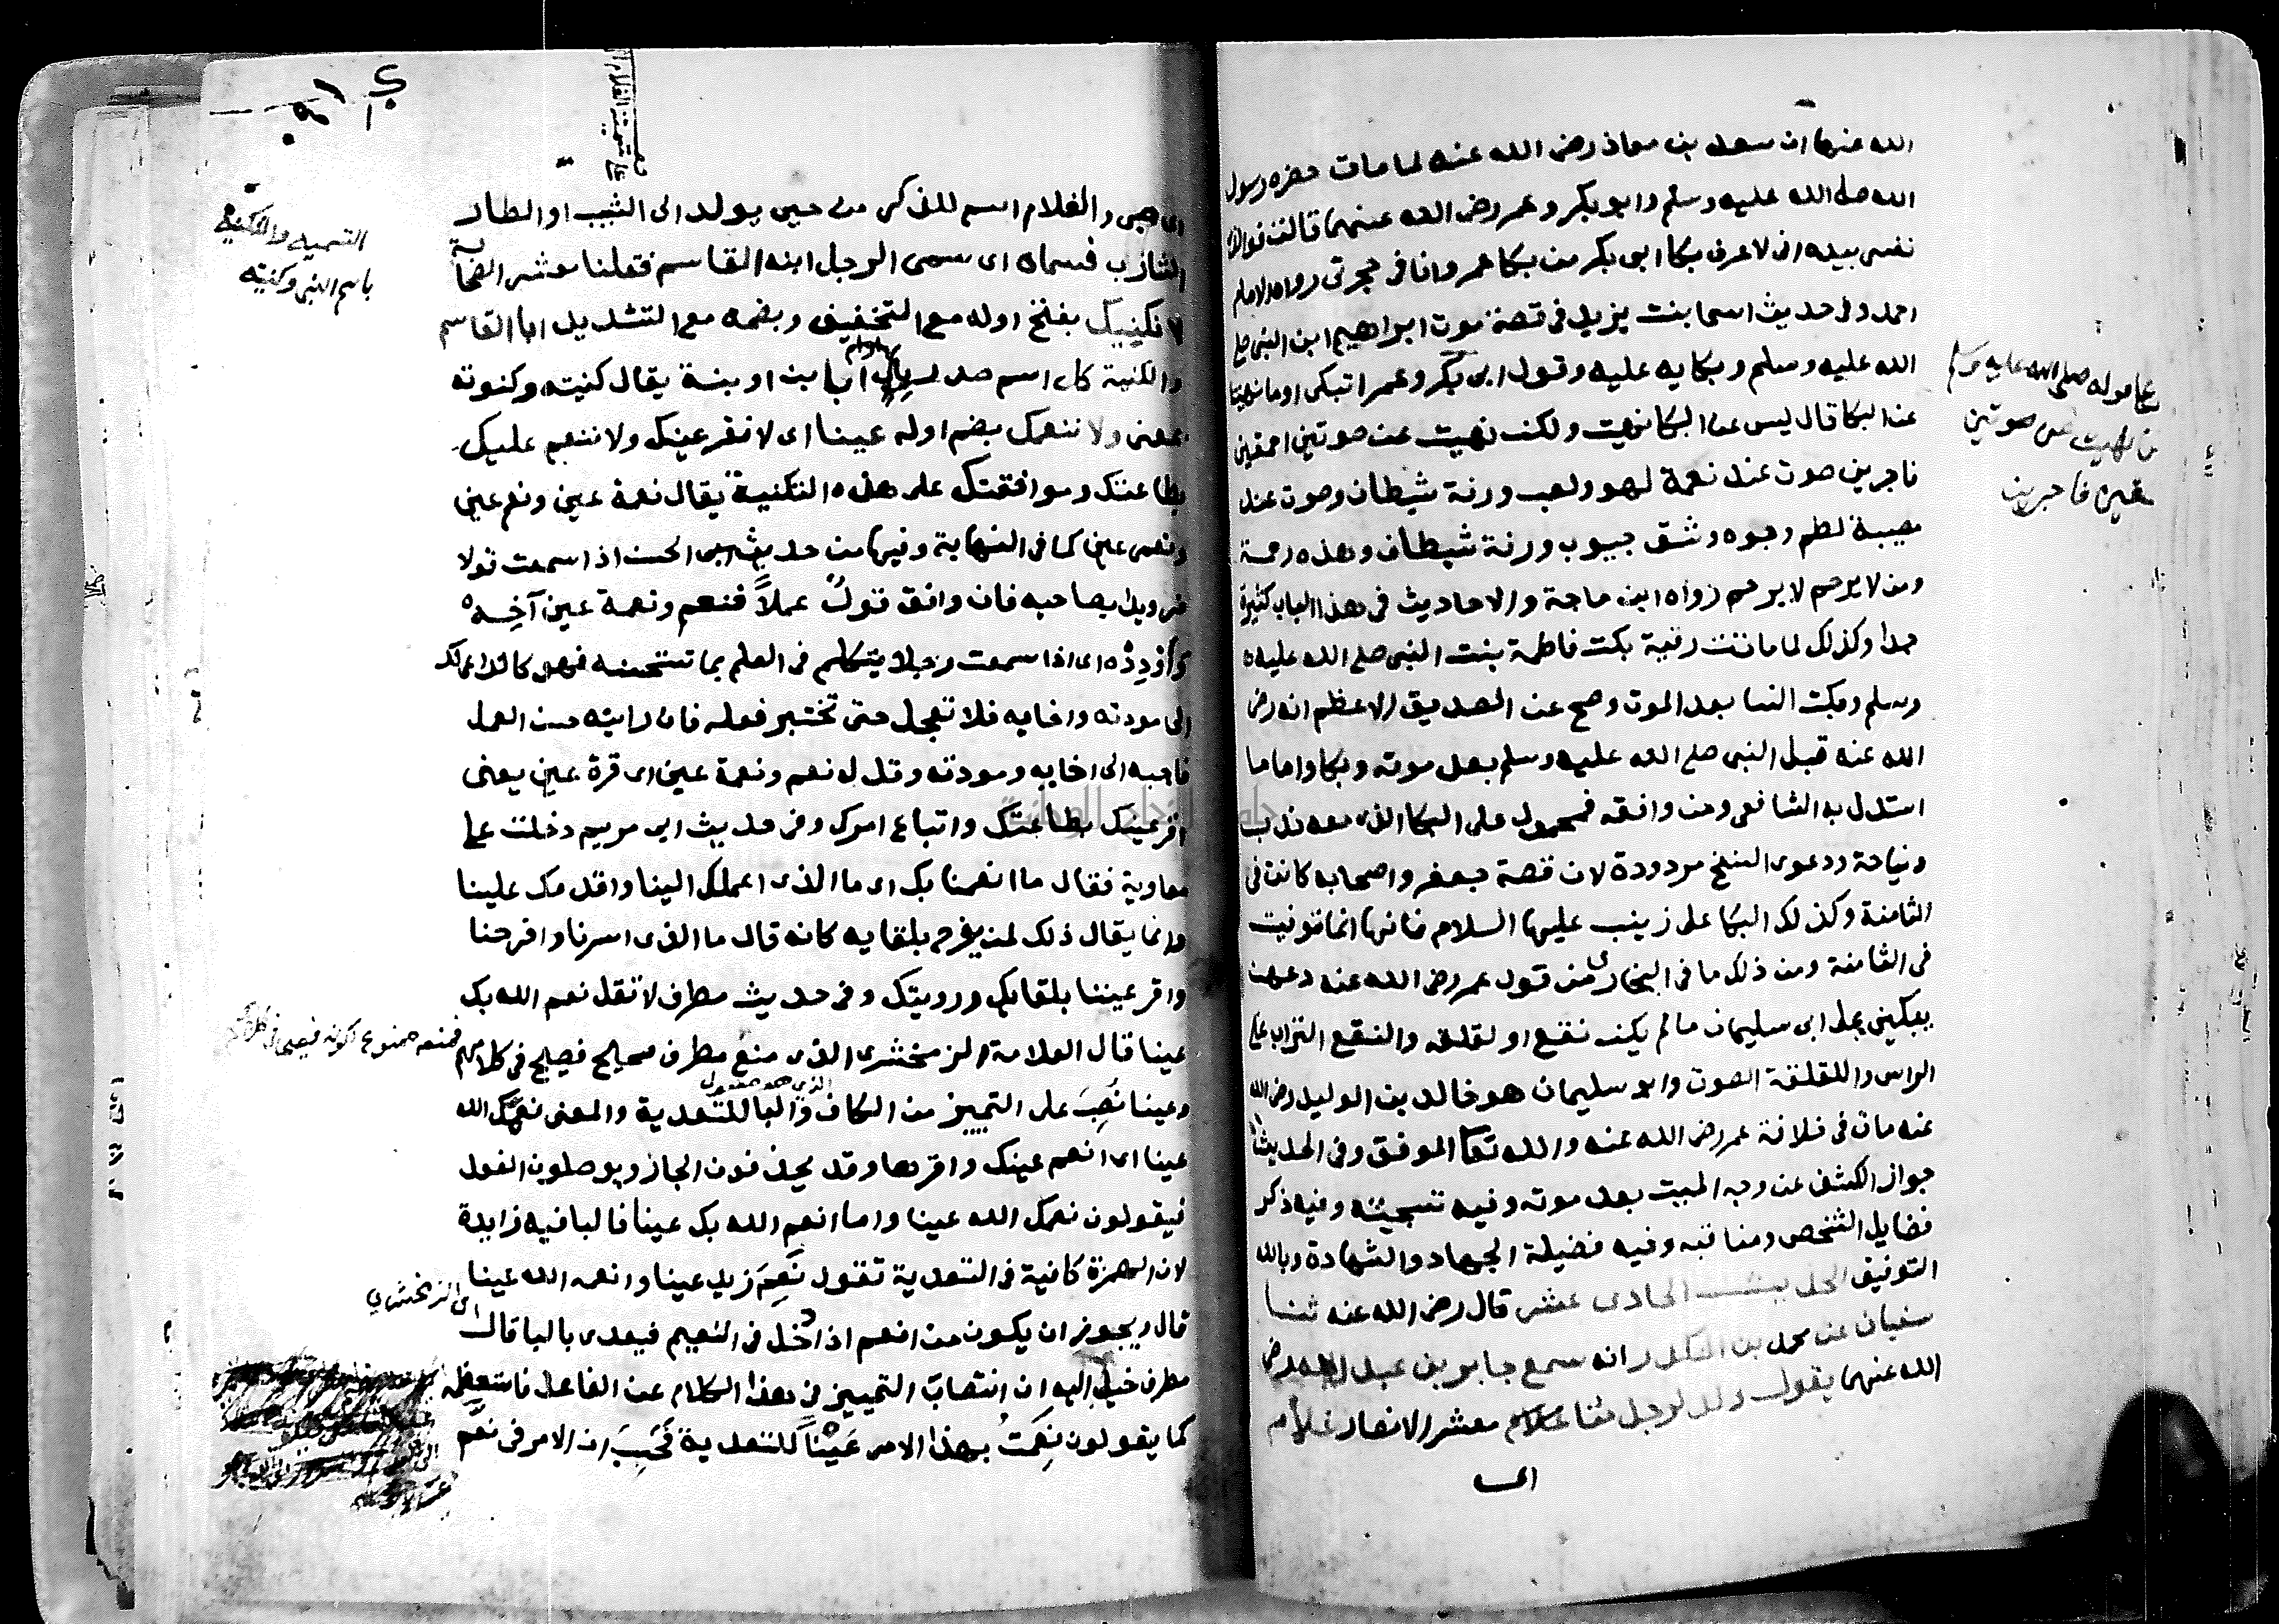 الله عنها ان سعد بن معاذ رضى الله عنه لما مات حضره رسول
الله صلى الله عليه وسلم وابو بكر وعمر رضى الله عنهما قالت فوالذى
نفسى بيده انى لاعرف بكا ابى بكر من بكا عمر وانا فى حجرتى رواه الامام
احمد وفى حديث اسما بنت يزيد فى قصة موت ابراهيم ابن النبى صلى
الله عليه وسلم وبكايه عليه وقول ابى بكر وعمر اتبكى اوما نهيتنا
عن البكا قال ليس عن البكا نهيت ولكن نهيت عن صوتين احمقين
فاجرين صوت عند نعمة لهو ولعب ورنة شيطان وصوت عند
مصيبة لطم وجوه وشق جيوب ورنة شيطان وهذه رحمة
ومن لا يرحم لا يرحم رواه ابن ماجة والاحاديث فى هذا الباب كثيرة
جدا وكذلك لما ماتت رقية بكت فاطمة بنت النبى صلى الله عليه
وسلم وبكت النسا بعد الموت وصح عن الصديق الاعظم انه رضى
الله عنه قبل النبى صلى الله عليه وسلم بعد موته وبكا واما ما
استدل به الشافعى ومن وافقه فمحمول على البكا الذى معه ندب
ونياحة ودعوى النسخ مردودة لان قصة جعفر واصحابه كانت فى
الثامنة وكذلك البكا على زينب عليها السلام فانها انما توفيت
فى الثامنة ومن ذلك ما فى البخارى من قول عمر رضى الله عنه دعهن
يبكينى على ابى سليمان ما لم يكن نقع او لقلقه والنقع التراب على
الراس واللقلقة الصوت وابو سليمان هو خالد بن الوليد رضى الله
عنه مات فى خلافة عمر رضى الله عنه والله تعا الموفق وفى الحديث
جواز الكشف عن وجه الميت بعد موته وفيه تسجيته وفيه ذكر
فضايل الشخص ومناقبه وفيه فضيلة الجهاد والشهادة وبالله
التوفيق الحديث الحادى عشر قال رضى الله عنه ثنا
سفيان عن محمد بن المنكدر انه سمع جابر بن عبد الله رضى
الله عنهما يقول ولد لرجل منا معشر الانصار غلام
اى
صلى الله عليه وسلم
نهيت عن صوتين
فاجرين
اى صبى والغلام اسم للذكر من حين يولد الى الشيب او الطار
الشارب فسماه اى سمى الرجل ابنه القاسم فقلنا معشر الصحابة
لا نكنيك بفتح اوله مع التخفيف وبضمه مع التشديد ابا القاسم
والكنية كل اسم صدر باب او ام ابا بن او بنة يقال كنيته وكنوته
بمعنى ولا ننعمك بضم اوله عينا اى لا نقر عينك ولا ننعم عليك
بطاعتك وموافقتك على هذه التكنية يقال نعمة عين ونعم عين
ونعمى عين كما فى النهاية وفيها من حديث ابى الحسن اذا سمعت قولا
فرويدا بصاحبه فان وافق قول عملاً فنعم ونعمة عين آخِه
وأَوْدِدْه اى اذا سمعت رجلا يتكلم فى العلم بما تستحسنه فهو كالداعى لك
الى مودته واخايه فلا تعجل حتى تختبر فعله فان رايته حسن العمل
فاجبه الى اخايه ومودته وقل له نعم ونعمة عين اى قرة عين يعنى
اقر عينك بطاعتك واتباع امرك وفى حديث ابى مريم دخلت على
معاوية فقال ما انعمنا بك اى ما الذى اعملك الينا واقدمك علينا
وانما يقال ذلك لمن يفرح بلقايه كانه قال ما الذى اسرنا وافرحنا
واقر عيننا بلقايك ورويتك وفى حديث مطرف لا تقل نعم الله بك
عينا قال العلامة الزمخشرى الذى منع مطرف صحيح فصيح فى كلامهم
وعينا نُصِبَ على التمييز من الكاف والبا للتعدية والمعنى نعمك الله
الذى هو مفعول
عينا اى انعم عينك واقرها وقد يحذفون الجار ويوصلون الفعل
فيقولون نعمك الله عينا واما انعم الله بك عينا فالبا فيه زايدة
لان الهمزة كافية فى التعدية تقول نَعِمَ زيد عينا وانعمه الله عينا
قال ويجوز ان يكون من انعم اذا دخل فى النعيم فيعدى بالبا قال
مطرف خيل اليه ان انتصاب التمييز فى هذا الكلام عن الفاعل فاستعظمه
كما يقولون نَعِمْتُ بهذا الامر عَيْناً للتعدية فحَسِبَ ان الامر فى نعم
التسميه والتكنى
باسم النبى وكنيته
اى الزمخشرى